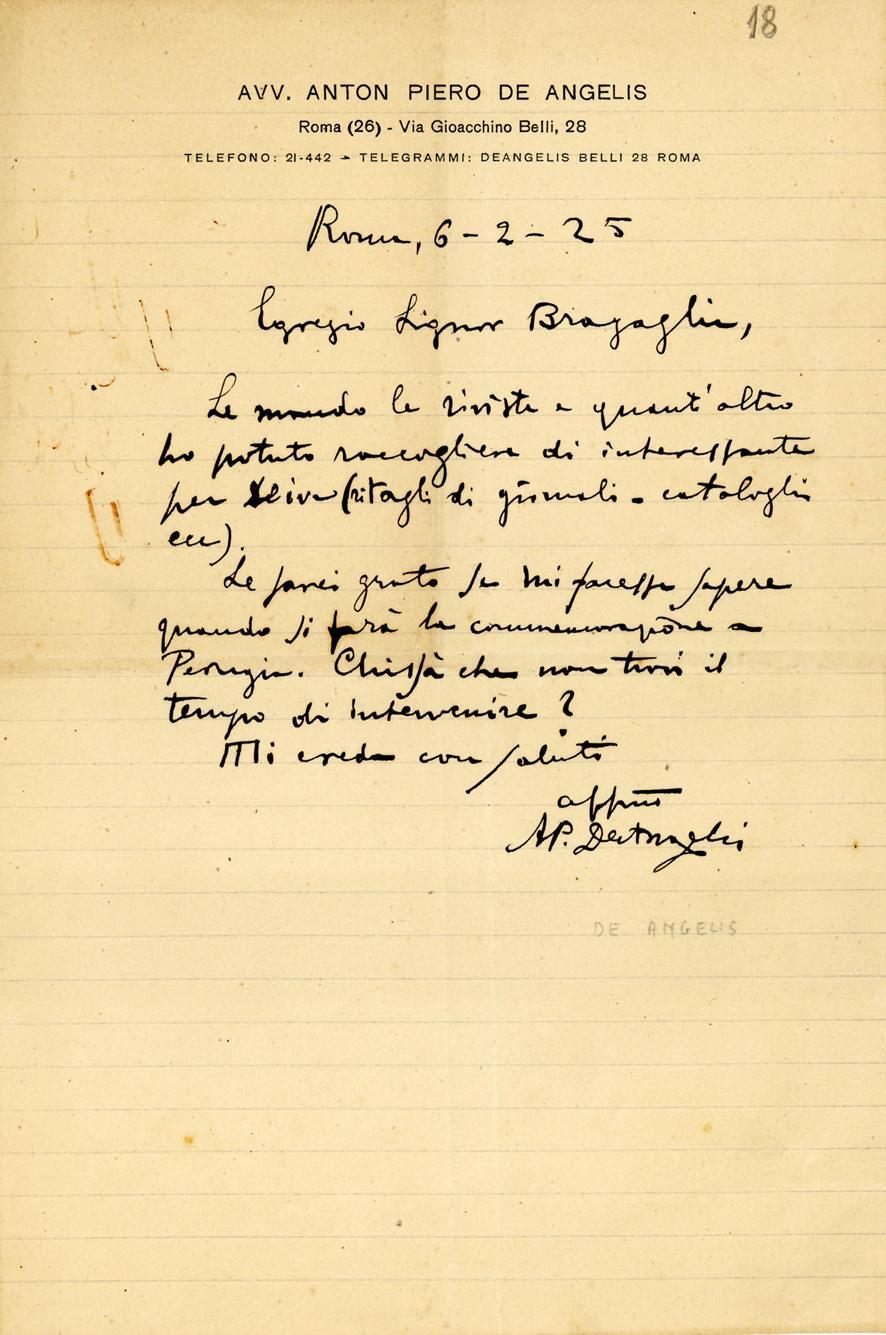 18
AVV. ANTON PIERO DE ANGELIS
Roma (26) - Via Gioacchino Belli, 28
TELEFONO: 21-442 - TELEGRAMMI: DEANGELIS BELLI 28 ROMA
Roma, 6-2-25
Egregio Signor Bragaglia,
Le mando le riviste e quant'altro
ho potuto raccogliere di interessante
per (ritagli di giornali - cataloghi
ecc).
Le sarei grato se mi facesse sapere
quando si farà la commemorazione a
Perugia. Chissà che non trovi il
tempo di intervenire?
Mi creda con saluti
affmo
AP. DeAngelis
DE ANGELIS